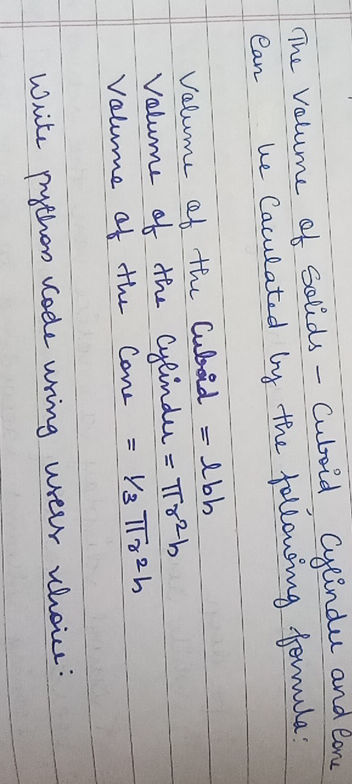 The Volume of Solids - Cuboid, Cylinder and Cone
can be Caculated by the following formula:
Volume of the Cuboid = lbh
Volume of the Cylinder = πr²h
Volume of the Cone = 1/3 πr²h
Write python code using user choice: